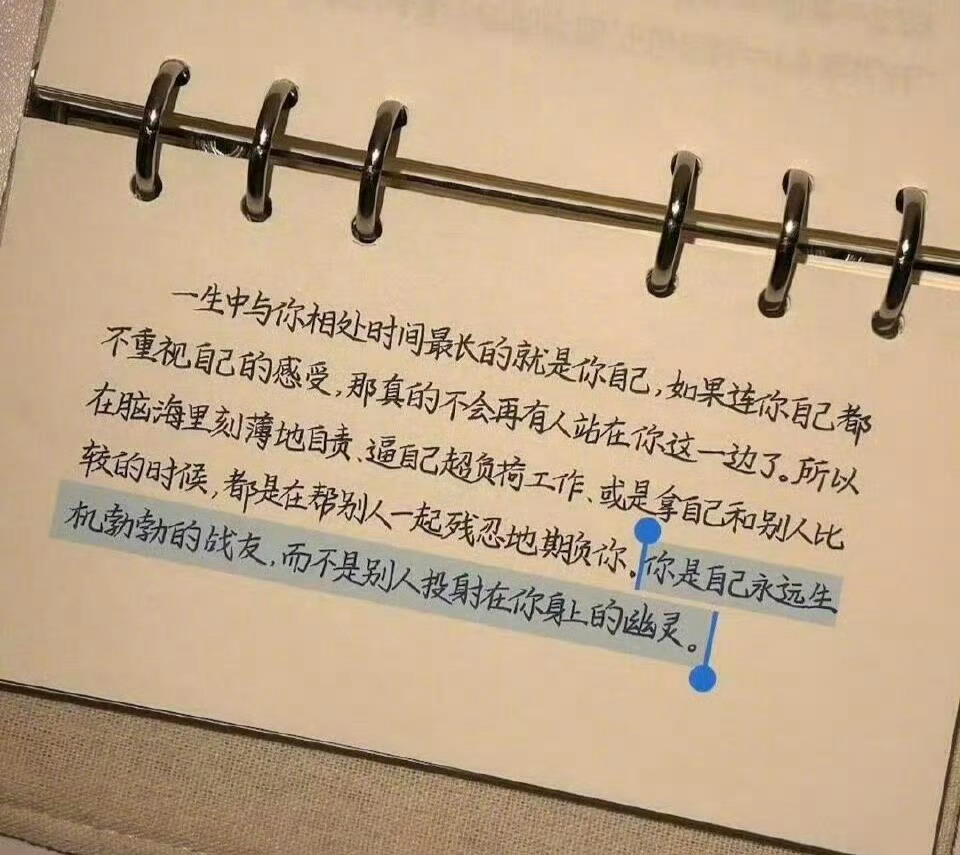 一生中与你相处时间最长的就是你自己，如果连你自己都
不重视自己的感受，那真的不会再有人站在你这一边了。所以
在脑海里刻薄地自责、逼自己超负荷工作、或是拿自己和别人比
较的时候，都是在帮别人一起残忍地期负你。你是自己永远生
机勃勃的战友，而不是别人投射在你身上的幽灵。